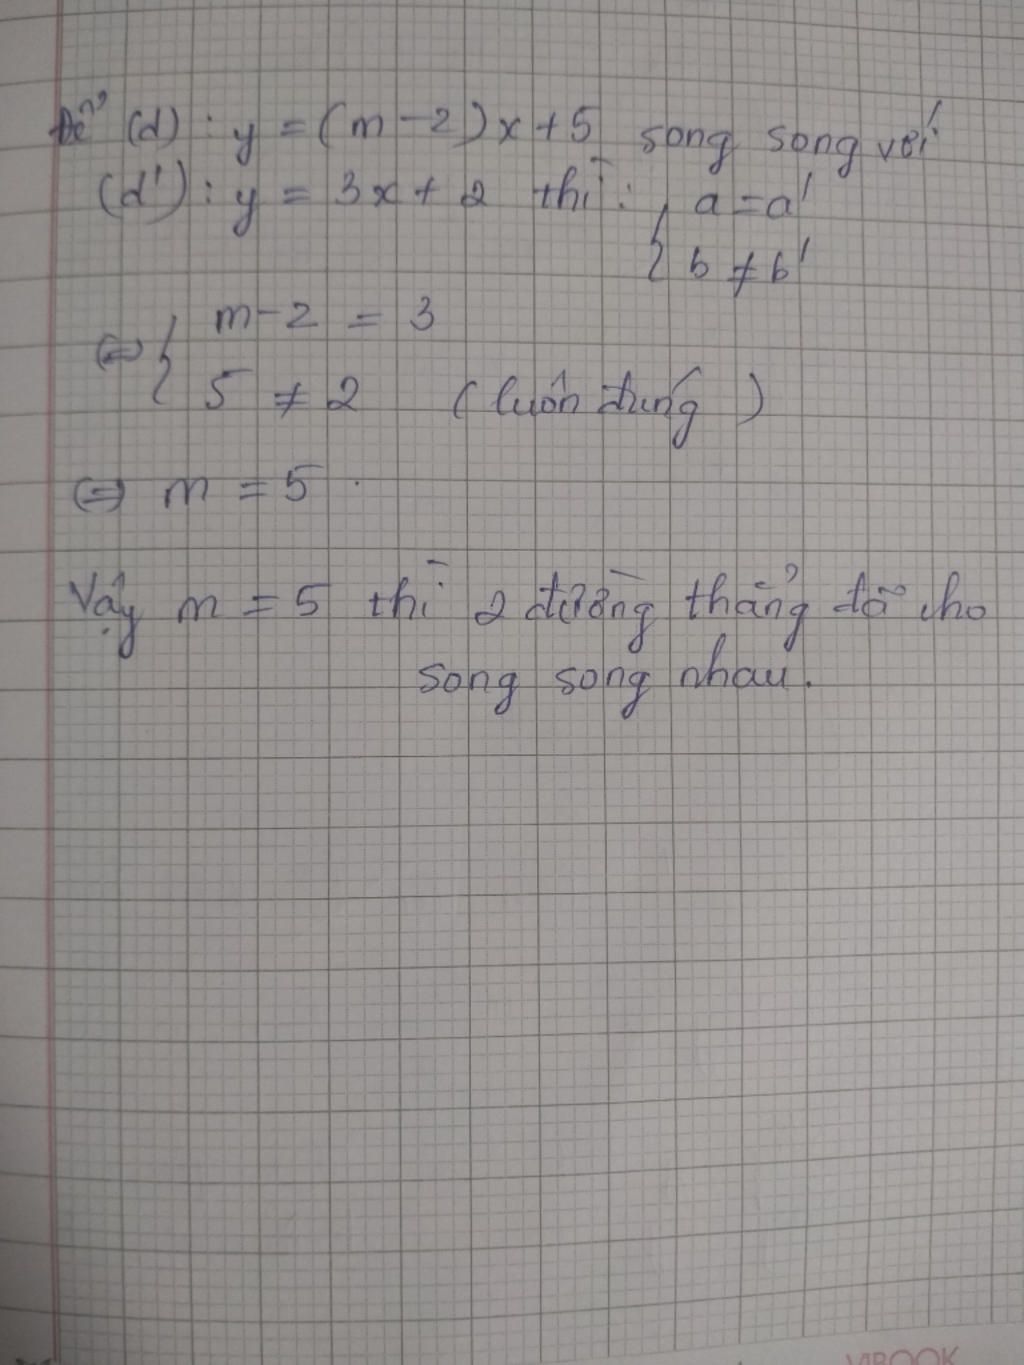 Để (d) : y = (m - 2)x + 5 song song với
(d') : y = 3x + 2 thì : { a = a'
b ≠ b'
⇔ { m - 2 = 3
5 ≠ 2 (luôn đúng)
⇔ m = 5.
Vậy m = 5 thì 2 đường thẳng đã cho
song song nhau.
VIBOOK